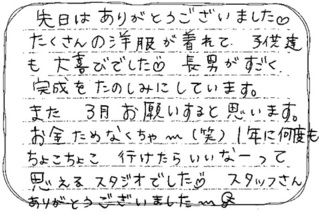 先日は ありがとうございました♡
たくさんの洋服が着れて 子供達
も 大喜びでした♡ 長男がすごく
完成をたのしみにしています。
また 3月 お願いすると思います。
お金ためなくちゃ〜(笑) 1年に何度も
ちょこちょこ 行けたらいいなーって
思える スタジオでした♡ スタッフさん
ありがとうございました〜